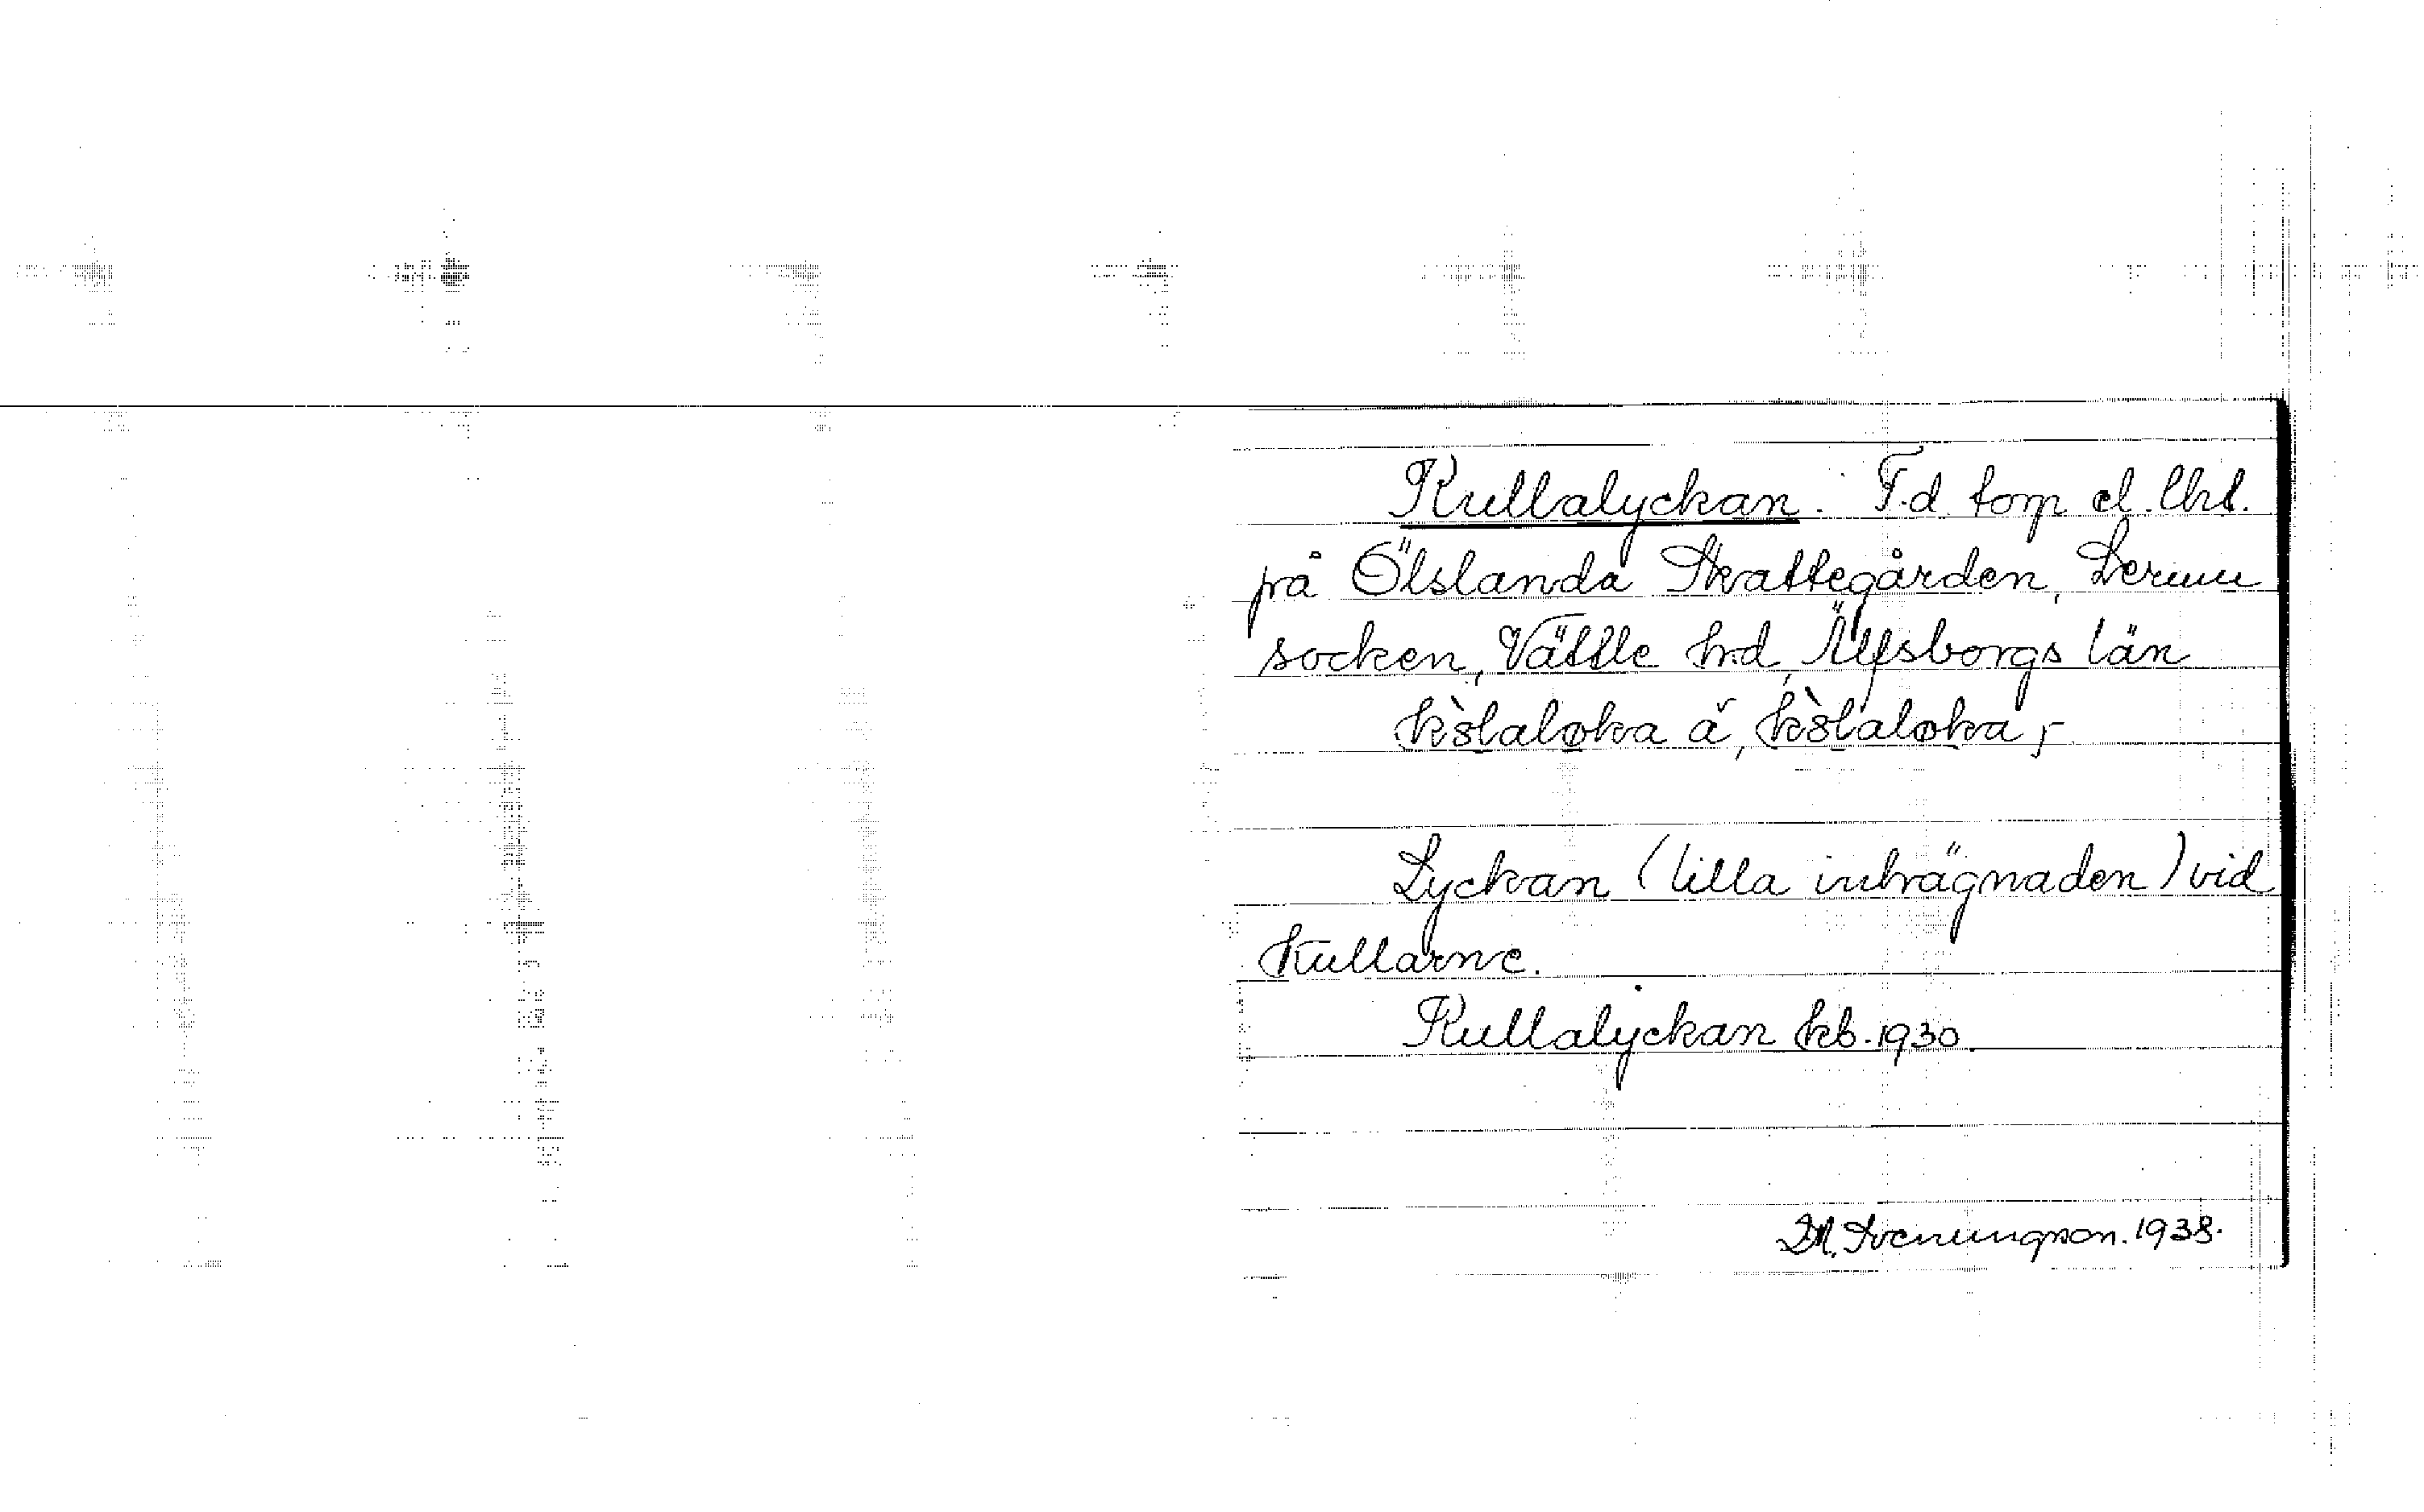 Kullalyckan. F.d. torp el. lht.
på Ölslanda Skattegården, Lerum
socken, Vättle hd, Älfsborgs län
Lyckan (lilla inhägnaden) vid
Kullarne.
Kullalyckan kb. 1930.
Svenungson. 1938.